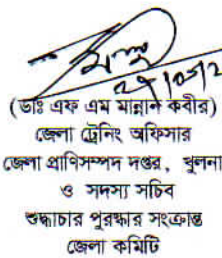 (ডাঃ এফ এম মান্নান কবীর)
জেলা ট্রেনিং অফিসার
জেলা প্রাণিসম্পদ দপ্তর, খুলনা
ও সদস্য সচিব
শুদ্ধাচার পুরষ্কার সংক্রান্ত
জেলা কমিটি